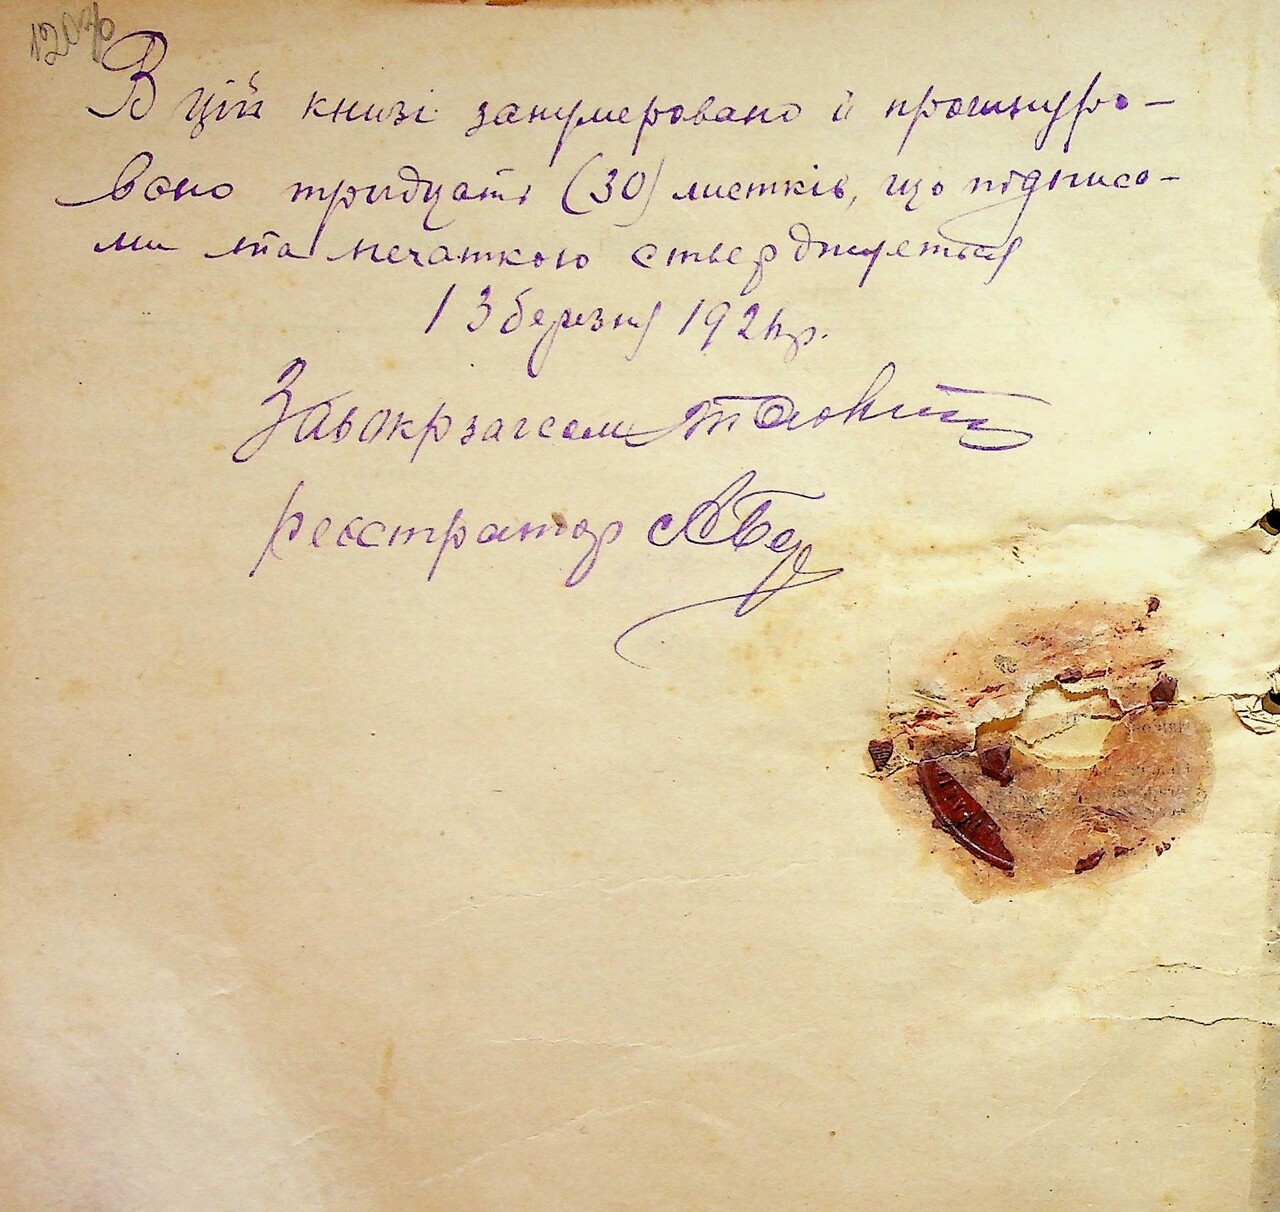 В цій книзі занумеровано й прошнуро-
вано тридцять (30) листків, що підписа-
ми та печаткою стверджується
13 березня 192 р.
Завокрзагсом
реєстратор